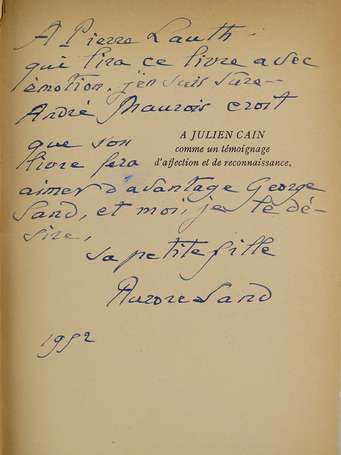 A Pierre Lauth
qui lira ce livre avec
émotion. j'en suis sûre—
André Maurois croit
que son
livre fera
aimer d'avantage George
Sand, et moi, je le dé-
sire,
sa petite fille
Aurore Sand
1952
A JULIEN CAIN
comme un témoignage
d'affection et de reconnaissance.